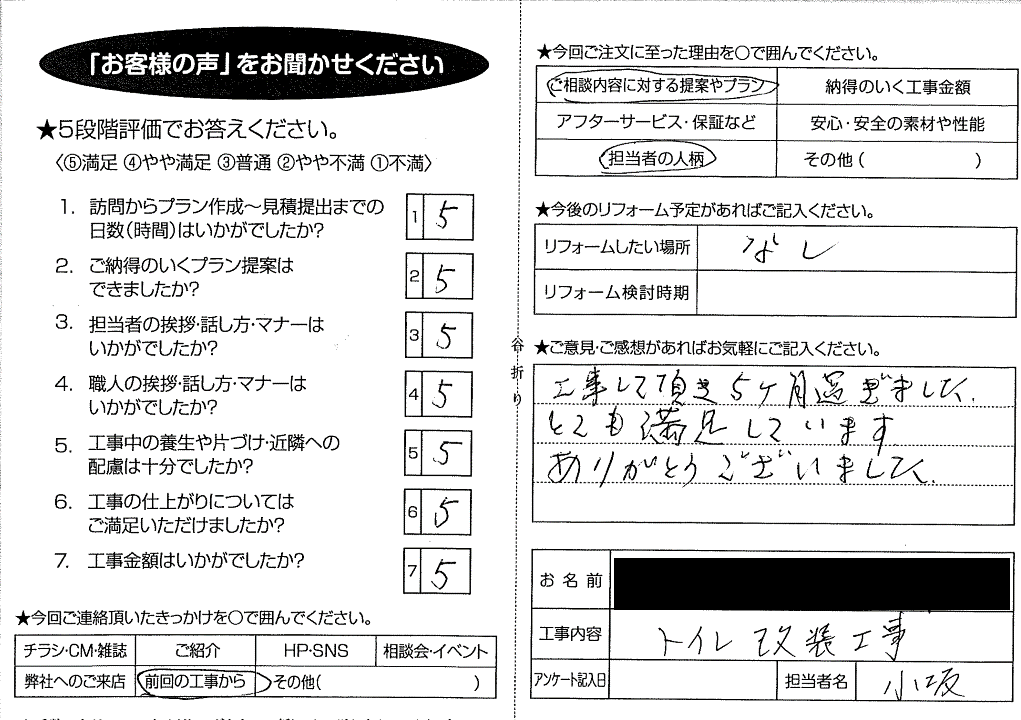 「お客様の声」をお聞かせください
★5段階評価でお答えください。
〈⑤満足 ④やや満足 ③普通 ②やや不満 ①不満〉
1. 訪問からプラン作成~見積提出までの
日数(時間)はいかがでしたか?
1 5
2. ご納得のいくプラン提案は
できましたか?
2 5
3. 担当者の挨拶・話し方・マナーは
いかがでしたか?
3 5
4. 職人の挨拶・話し方・マナーは
いかがでしたか?
4 5
5. 工事中の養生や片づけ・近隣への
配慮は十分でしたか?
5 5
6. 工事の仕上がりについては
ご満足いただけましたか?
6 5
7. 工事金額はいかがでしたか?
7 5
★今回ご連絡頂いたきっかけを○で囲んでください。
チラシ・CM・雑誌 ご紹介 HP・SNS 相談会・イベント
弊社へのご来店 前回の工事から その他( )
谷折り
★今回ご注文に至った理由を○で囲んでください。
ご相談内容に対する提案やプラン 納得のいく工事金額
アフターサービス・保証など 安心・安全の素材や性能
担当者の人柄 その他( )
★今後のリフォーム予定があればご記入ください。
リフォームしたい場所 なし
リフォーム検討時期
★ご意見・ご感想があればお気軽にご記入ください。
工事して頂き5ヶ月過ぎました.
とても満足しています
ありがとうございました.
お名前
工事内容 トイレ改装工事
アンケート記入日 担当者名 小坂